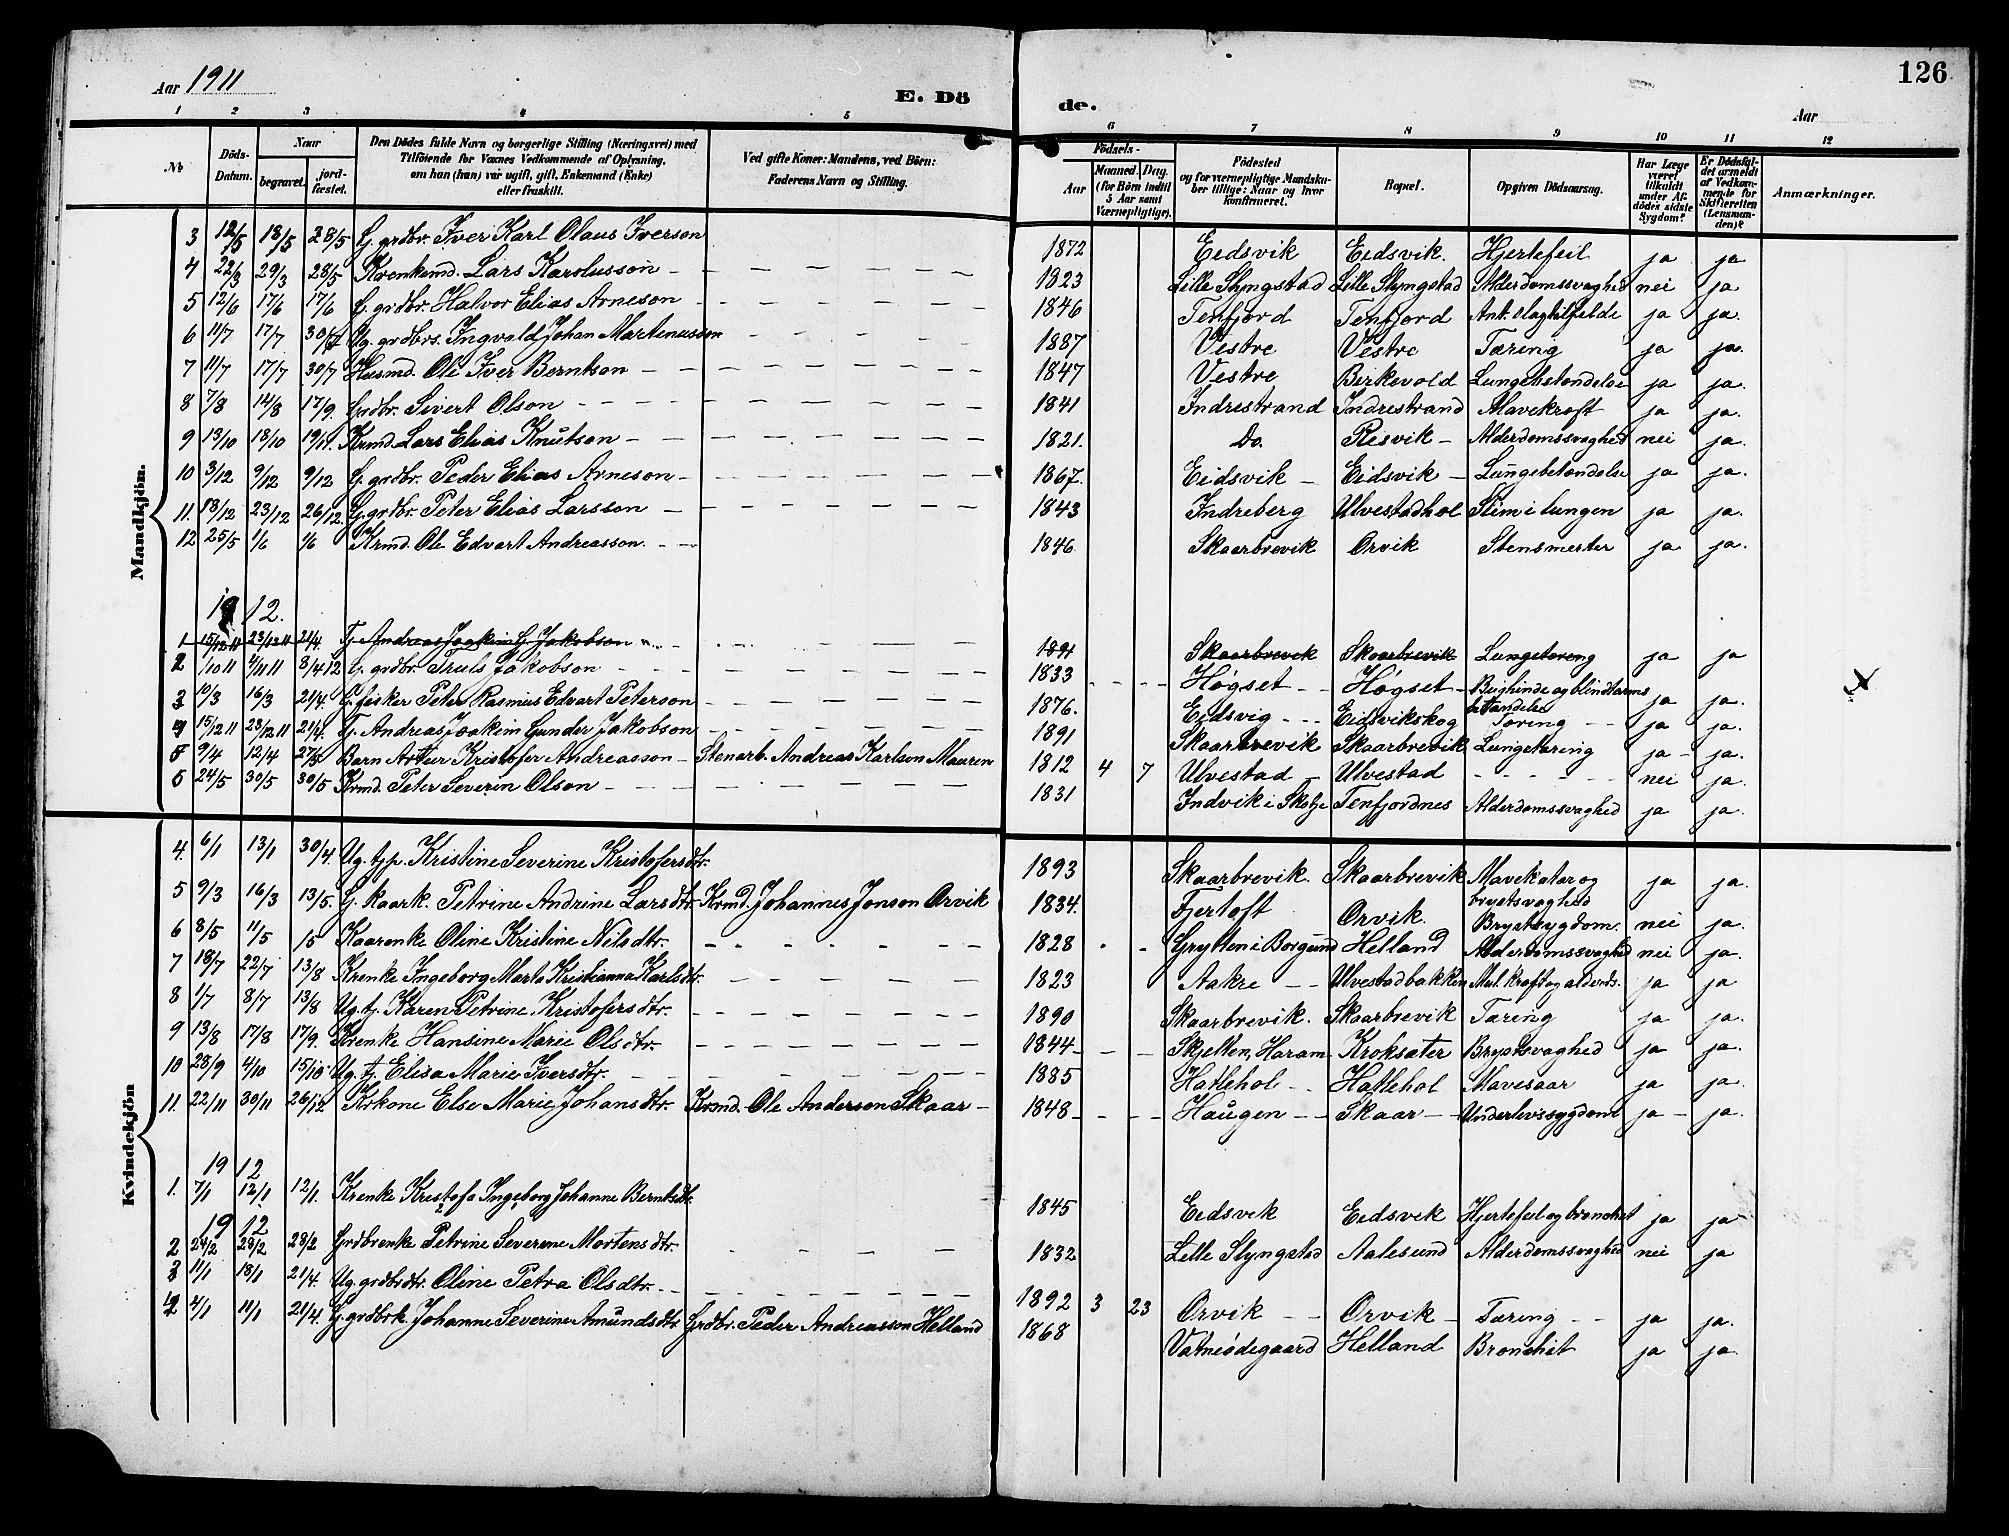 126
Aar 1911
E. Dö de.
Aar
1 2 3 4 5 6 7 8 9 10 11 12
No
Döds-Datum.
Naar
begravet.
jord-fæstet.
Den Dödes fulde Navn og borgerlige Stilling (Næringsvei) med
Tilföiende for Voxnes Vedkommende af Oplysning,
om han (hun) var ugift, gift, Enkemand (Enke)
eller fraskilt.
Ved gifte Koner: Mandens, ved Börn:
Faderens Navn og Stilling.
Födsels-
Aar
Maaned. Dag.
(for Börn indtil
5 Aar samt
Værnepligtige).
Födested
og for værnepligtige Mandska-
ber tillige: Naar og hvor
konfirmeret.
Bopæl.
Opgiven Dödsaarsag.
Har Læge
været
tilkaldt
under Af-
dödes sidste
Sygdom?
Er Dödsfal-
det anmeldt
af Vedkom-
mende for
Skifteretten
(Lensman-
den)?
Anmærkninger.
Mandkjön.
3 12/5 18/5 28/5 G. grdbr. Iver Karl Olaus Iverson 1872 Eidsvik Eidsvik. Hjertefeil ja ja
4 22/3 29/3 28/5 Krenkemd. Lars Karolusson 1823 Lille Slyngstad Lille Slyngstad Alderdomssvaghed nei ja
5 12/6 17/6 17/6 G. grdbr. Halvor Elias Arneson 1846 Tenfjord Tenfjord Ant. slagtilfelde ja ja.
6 11/7 17/7 30/7 Ug. grdbrs. Ingvald Johan Martinusson 1887 Vestre Vestre Tæring ja ja.
7 11/7 17/7 30/7 Husmd. Ole Iver Berntson 1847 Vestre Birkevold Lungebetendelse ja ja.
8 7/8 14/8 17/9. Grdbr. Sivert Olson 1841 Indrestrand Indrestrand Mavekræft ja ja.
9 13/10 18/10 19/11. Krmd. Lars Elias Knutson 1821. Do. Resvik Alderdomssvaghed nei ja.
10 3/12 9/12 9/12 G. grdbr. Peder Elias Arneson 1867. Eidsvik Eidsvik Lungebetendelse ja ja.
11. 18/12 23/12 26/12. G. grdbr. Peter Elias Larsson 1843 Indreberg Ulvestadhol Slim i lungen ja ja.
12 25/5 1/6 1/6 Krmd. Ole Edvart Andreasson. 1846. Skaarbrevik Orvik Stensmerter ja ja.
1912.
1 15/12 11 23/12 11 21/4. Tj. Andreas Joakim G. Jakobson 1891 Skaarbrevik Skaarbrevik Lungetæring ja ja
2 /10 11 4/11 11 8/4 12 G. grdbr. Truls Jakobson 1833 Høgset Høgset Bughinde og blindtarms betændelse ja ja.
3 10/3 16/3 21/4. G. fisker Peter Rasmus Edvart Peterson 1876. Eidsvig Eidsvikskog Tæring ja ja.
4 15/12 11 23/12 11 21/4. Tj. Andreas Joakim Gunder Jakobson 1891 Skaarbrevik Skaarbrevik Lungetæring ja ja.
5 9/4 12/4 27/5 Barn Artur Kristofer Andreasson Stenarb. Andreas Karlson Mauren 1812 4 7 Ulvestad Ulvestad nei ja.
6 24/5 30/5 30/5 Krmd. Peter Severin Olson 1831 Indvik i Skodje Tenfjordnes Alderdomssvaghed ja ja.
Kvindekjön
4. 6/1 13/1 30/4. Ug. tjp. Kristine Severine Kristofersdtr. 1893 Skaarbrevik. Skaarbrevik Mavekatar og brystsvaghed ja ja.
5 9/3 16/3 13/5. G. kaark. Petrine Andrine Larsdtr. Krmd. Johannes Jonson Orvik 1834. Fjertoft Orvik. Brystsygdom. nei ja.
6 8/5 11/5 15 Kaarenke Oline Kristine Nilsdtr. 1828 Grytten i Borgund Helland Alderdomssvaghed nei ja.
7 18/7 22/7 13/8 Krenke Ingeborg Marta Kristianna Karlsdtr. 1823 Aakre Ulvestadbakken ja ja
8 1/7 8/7 13/8 Ug. tj. Karen Petrine Kristofersdtr. 1890 Skaarbrevik. Skaarbrevik Tæring ja ja.
9 13/8 17/8 17/9. Krenke Hansine Marie Olsdtr. 1844 Skjelten, Haram Kroksæter Brystsvaghed ja ja.
10 28/9 4/10 15/10 Ug. tj. Elisa Marie Iversdtr. 1885 Hatlehol Hatlehol Mavesaar ja ja.
11. 22/11 30/11 26/12 Krkone Else Marie Johansdtr. Krmd. Ole Anderson Skaar 1848 Haugen Skaar Underlivssygdom ja ja.
1912
1. 7/1 12/1 12/1. Krenke Kristofa Ingeborg Johanne Berntsdtr. 1845 Eidsvik Eidsvik Hjertefeil og bronchit ja ja
1912
2 24/2 28/2 28/2 Grdbrenke Petrine Severine Mortensdtr. 1832 Lille Slyngstad Aalesund Alderdomssvaghed nei ja
3 11/1 18/1 21/4. Ug. grdbrdtr. Oline Petra Olsdtr. 1892 3 23 Orvik Orvik Tæring ja ja.
4 4/1 11/1 21/4. G. grdbrk. Johanne Severine Amundsdtr. Grdbr. Peder Andreasson Helland 1868 Vatneødegaard Helland Bronchit ja ja.